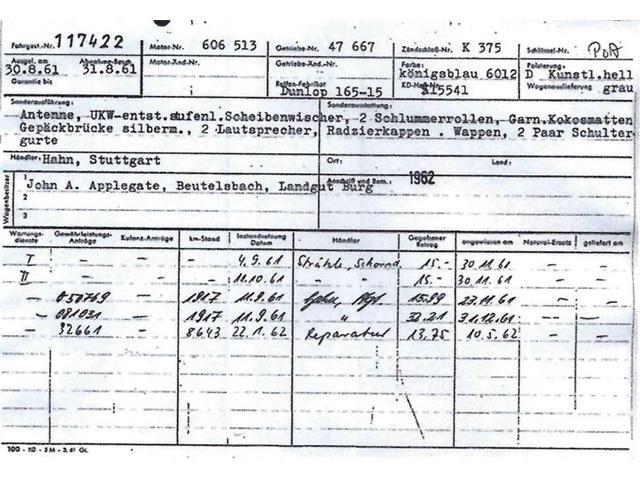 Fahrgest.-Nr. 117422 Motor-Nr. 606 513 Getriebe-Nr. 47 667 Zündschloß-Nr. K 375 Schlüssel-Nr.
Ausgel. am 30.8.61 31.8.61 Motor-Änd.-Nr. Getriebe-Änd.-Nr. Farbe: königsblau 6012 Polsterung: D Kunstl.hell
Garantie bis Reifen-Fabrikat Dunlop 165-15 15541 Wagenauslieferung grau
Sonderausführung: Sonderausstattung:
Antenne, UKW-entst.stufenl.Scheibenwischer, 2 Schlummerrollen, Garn.Kokosmatten
Gepäckbrücke silberm., 2 Lautsprecher, Radzierkappen . Wappen, 2 Paar Schulter
gurte
Händler: Hahn, Stuttgart Ort: Land:
Wagenbesitzer 1 John A. Applegate, Beutelsbach, Landgut Burg 1962
2
3
Wartungs-dienste Gewährleistungs-Anträge Kulanz-Anträge km-Stand Datum Händler Gegebener Betrag angewiesen am Natural-Ersatz geliefert am
I – – – 4.9.61 15.- 30.11.61 – –
II – – – 11.10.61 15.- 30.11.61 – –
– 050769 – 1917 11.9.61 15.99 23.11.61 – –
– 081031 – 1917 11.9.61 " 32.21 31.12.61 – –
– 32661 – 8643 22.1.62 Reparatur 13,75 10.5.62 – –
100 - KD - 5 M - 3. 61 Gt.